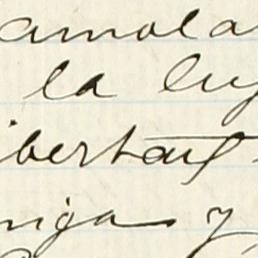 amola
la luz
ibertad
nigas y